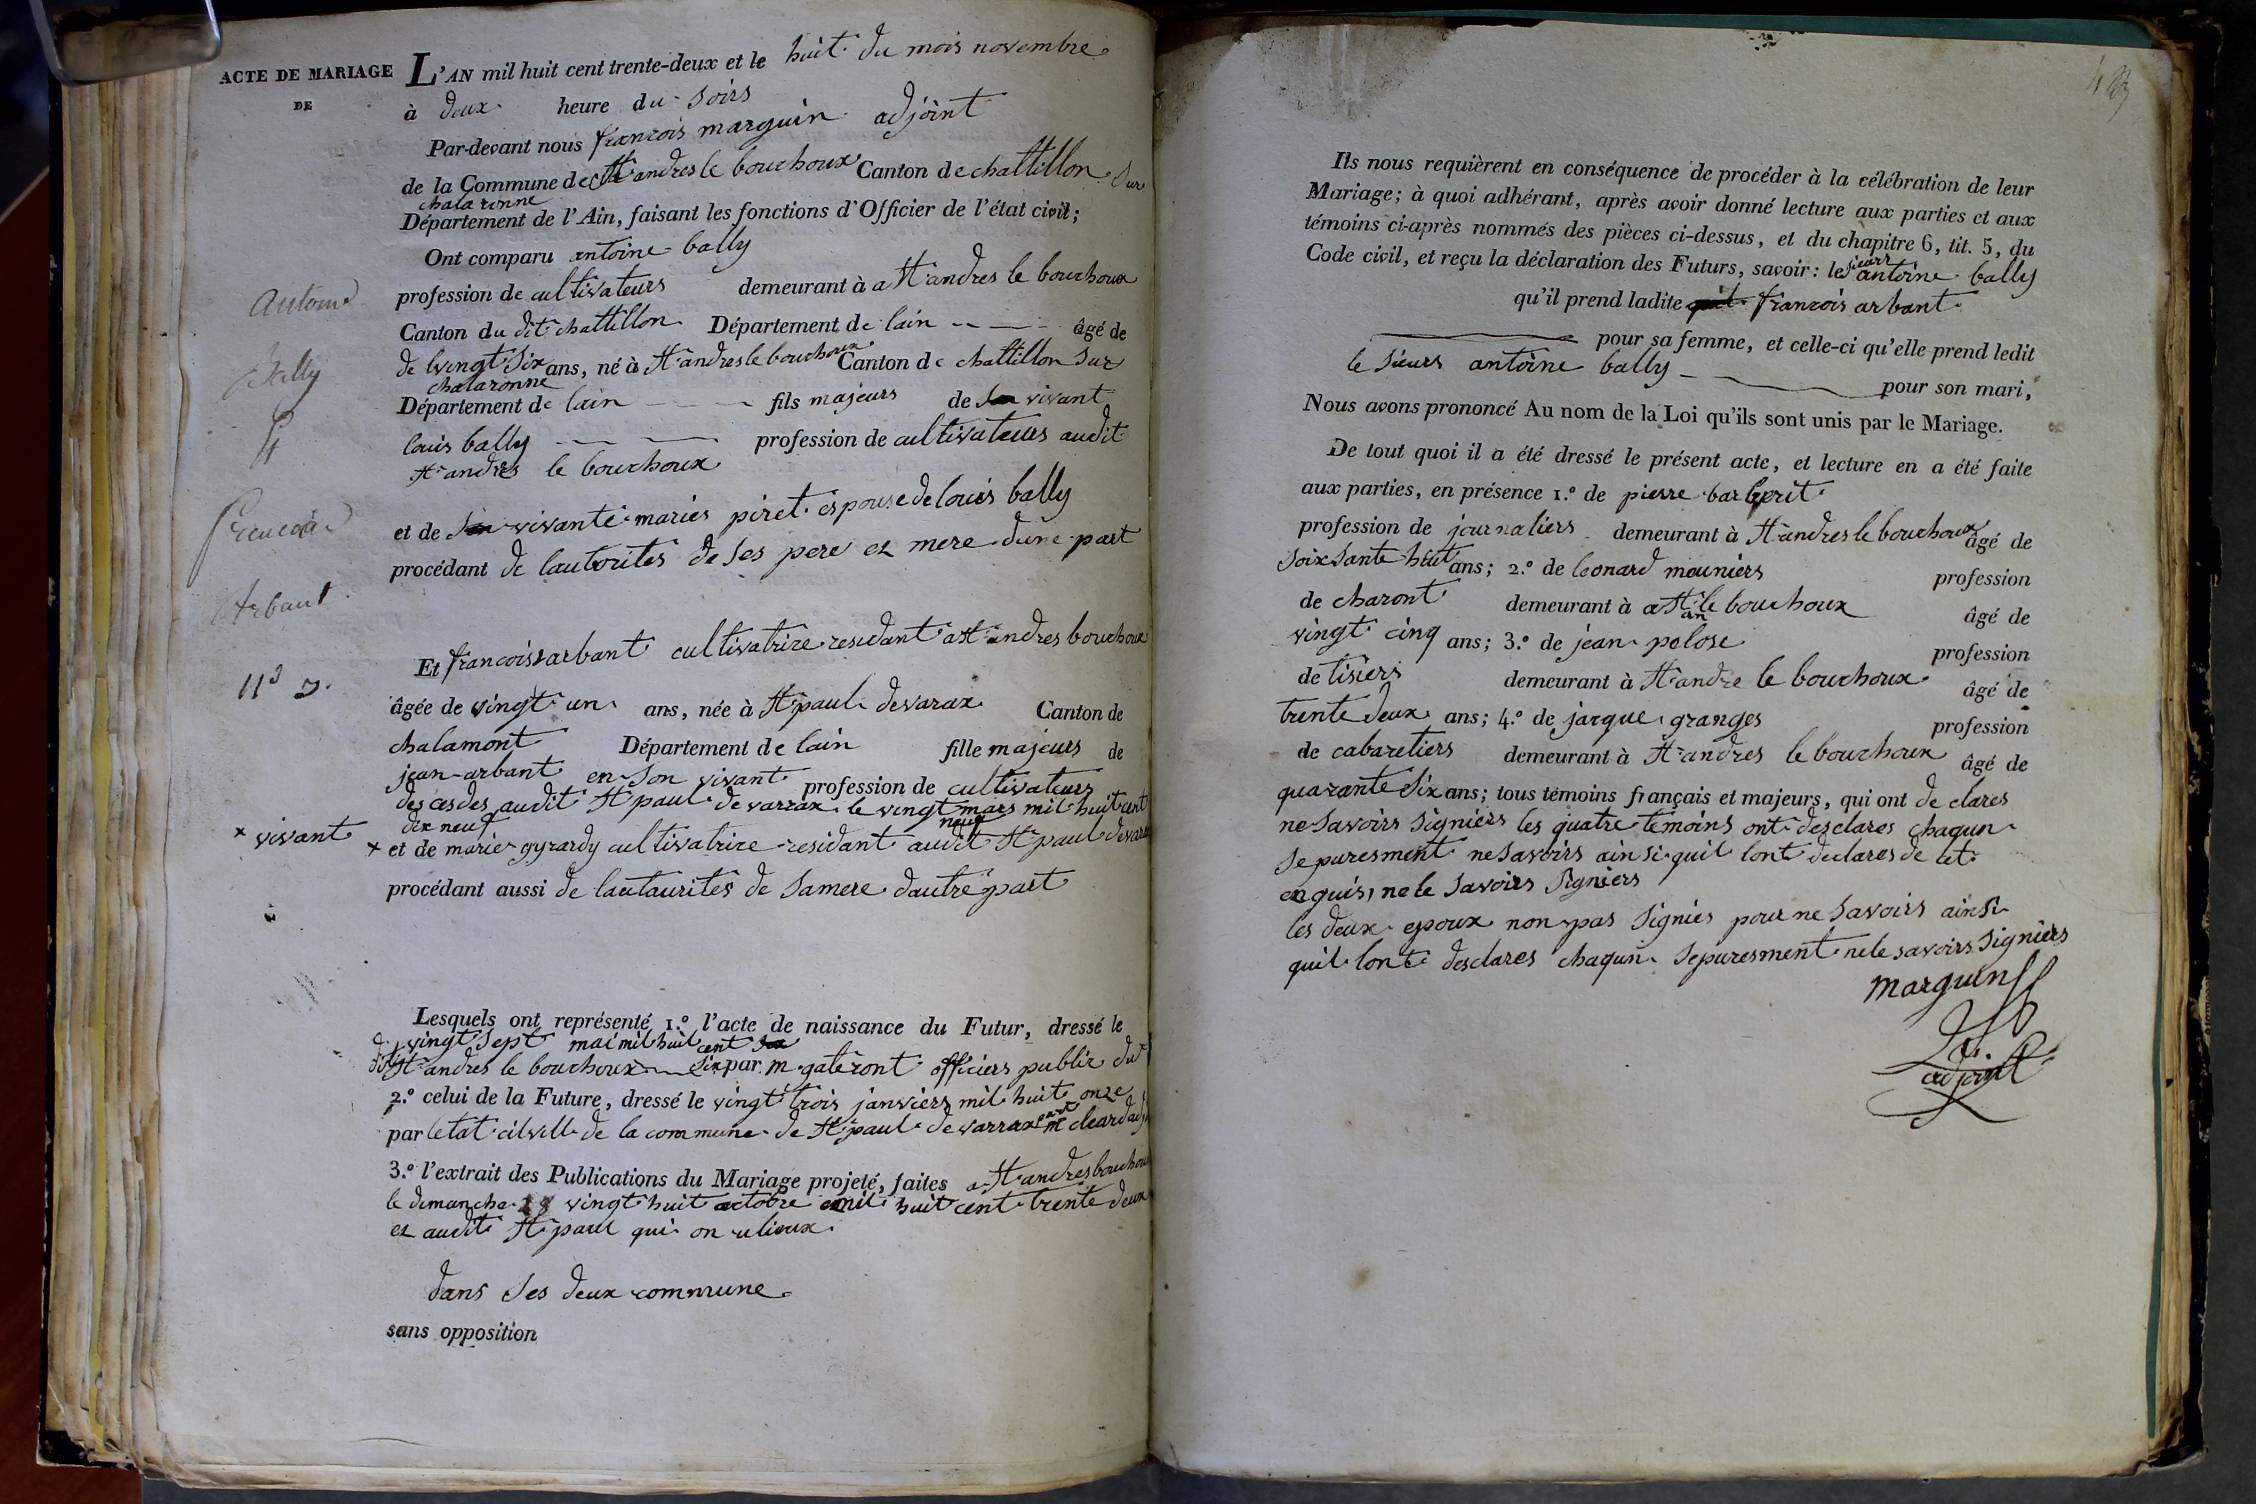 ACTE DE MARIAGE
DE
antoine
Bally
Et
francois
Arbant
n.° 7.
L'AN mil huit cent trente-deux et le huit du mois novembre
à deux heure du soirs
Par-devant nous francois marguin adjoint
de la Commune de St andres le bouchoux Canton de chattillon sur
chalaronne
Département de l'Ain, faisant les fonctions d'Officier de l'état civil;
Ont comparu antoine bally
profession de cultivateurs demeurant à a St andres le bouchoux
Canton du dit chattillon Département de lain âgé de
de vingt six ans, né à St andres le bouchoux Canton de chattillon sur
chalaronne
Département de lain fils majeurs de vivant
louis bally profession de cultivateurs audit
St andres le bouchoux
et de vivante maries piret espouse de louis bally
procédant de lautorites de ses pere et mere dune part
Et francois arbant cultivatrice residant a St andres bouchoux
âgée de vingt un ans, née à St paul de varax Canton de
chalamont Département de lain fille majeurs de
jean arbant en son vivant profession de cultivateurs
descesdes audit St paul de varrax le vingt mars mil huit cent
dix neuf neuf
+ vivant + et de marie gyrardy cultivatrice residant audit St paul de vara
procédant aussi de lautaurites de sa mere dautre part
Lesquels ont représenté 1.° l'acte de naissance du Futur, dressé le
vingt sept mai mil huit cent
dit St andres le bouchoux six par m gateront officiers public du
2.° celui de la Future, dressé le vingt trois janviers mil huit onze
par letat cilvill de la commune de St paul de varrax part m cleard adj
3.° l'extrait des Publications du Mariage projeté, faites a St andres bouchoux
le dimanche vingt huit octobre mil huit cent trente deux
et audit St paul qui on ulieux
dans ses deux commune
sans opposition
Ils nous requièrent en conséquence de procéder à la célébration de leur
Mariage; à quoi adhérant, après avoir donné lecture aux parties et aux
témoins ci-après nommés des pièces ci-dessus, et du chapitre 6, tit. 5, du
Code civil, et reçu la déclaration des Futurs, savoir: le sieurs antoine bally
qu'il prend ladite francois arbant
pour sa femme, et celle-ci qu'elle prend ledit
le sieurs antoine bally pour son mari,
Nous avons prononcé Au nom de la Loi qu'ils sont unis par le Mariage.
De tout quoi il a été dressé le présent acte, et lecture en a été faite
aux parties, en présence 1.° de pierre
profession de journaliers demeurant à St andres le bouchoux âgé de
soixsante huit ans; 2.° de leonard mouniers profession
de charont demeurant à a St an le bouchoux âgé de
vingt cinq ans; 3.° de jean pelose profession
de tisiers demeurant à St andre le bouchoux âgé de
trente deux ans; 4.° de jarque granges profession
de cabaretiers demeurant à St andres le bouchoux âgé de
quarante six ans; tous témoins français et majeurs, qui ont de clares
ne savoirs signiers les quatre temoins ont desclares chaqun
separesment ne savoirs ainsi quil lont declares de cet
enquis, ne le savoirs signiers
les deux epoux non pas signies pour ne savoirs ainsi
quil lont desclares chaqun separesment ne le savoirs signiers
marguin
adjoint